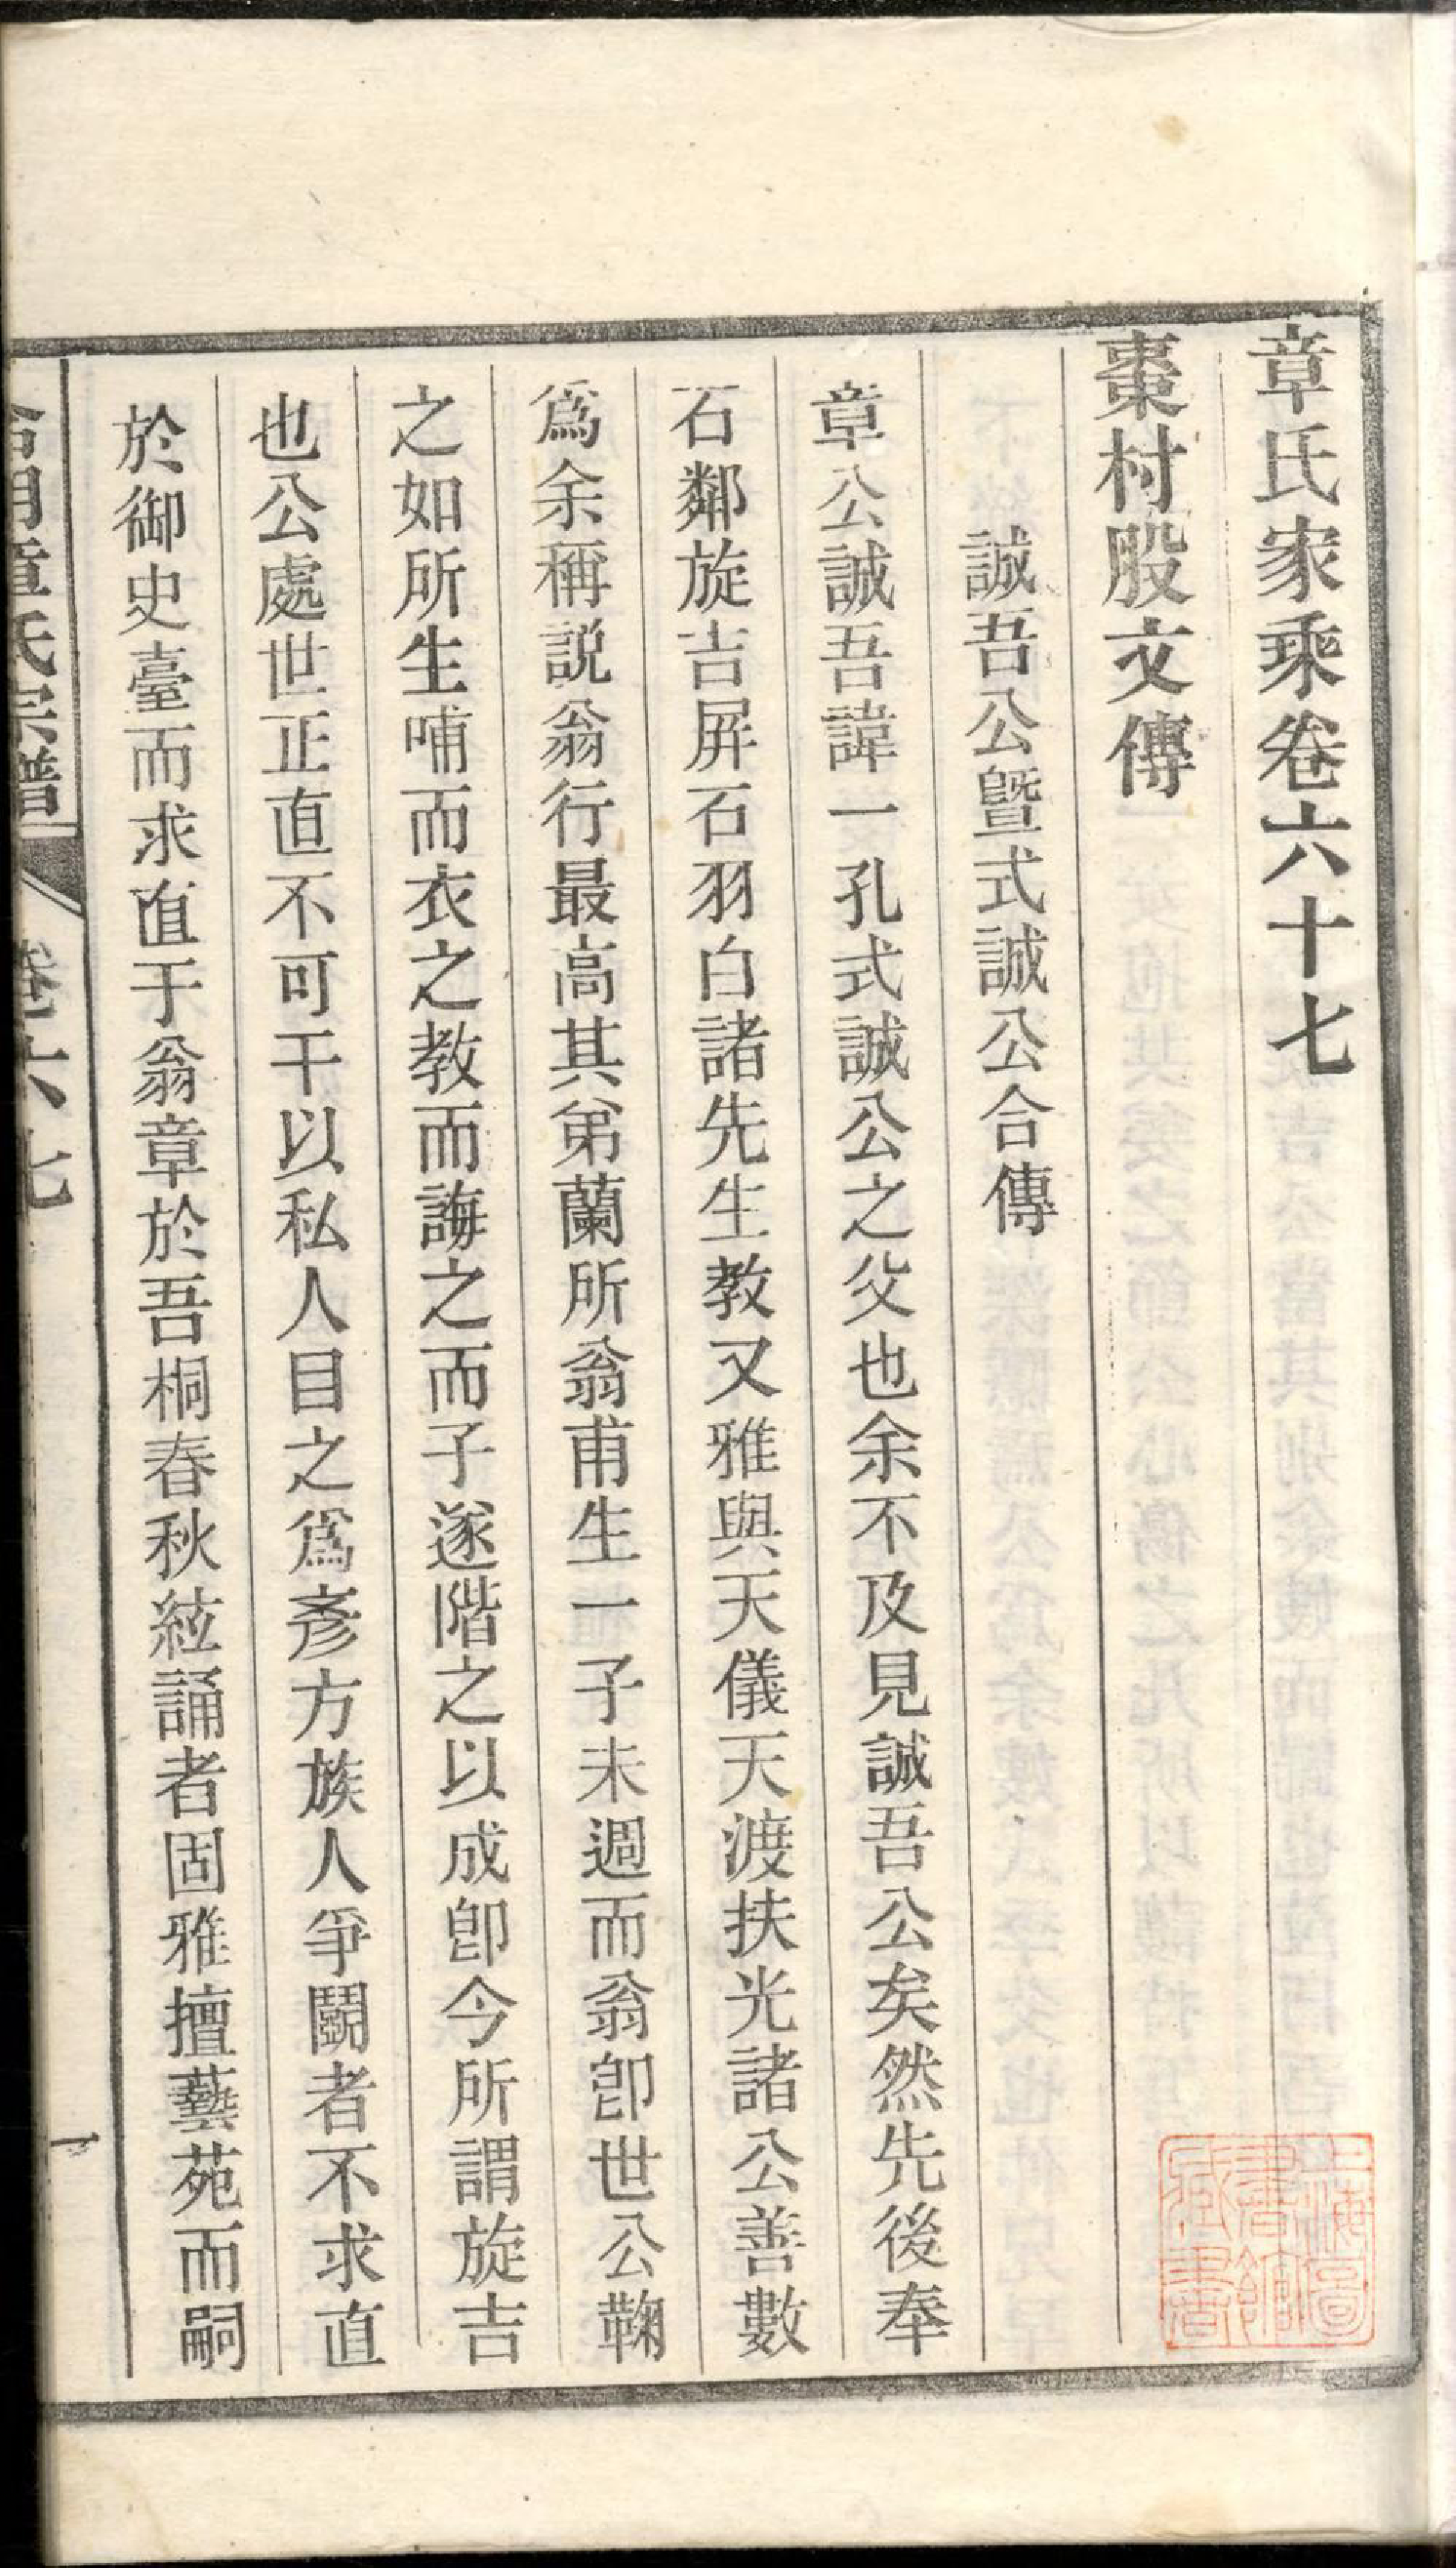 章氏家乘卷六十七
棗村股文傳
誠吾公曁式誠公合傳
章公誠吾諱一孔式誠公之父也余不及見誠吾公矣然先後奉
石鄰旋吉屏石羽白諸先生教又雅與天儀天渡扶光諸公善數
爲余稱説翁行最高其弟蘭所翁甫生一子未週而翁卽世公鞠
之如所生哺而衣之教而誨之而子遂階之以成卽今所謂旋吉
也公處世正直不可干以私人目之爲彥方族人爭鬭者不求直
於御史臺而求直于翁章於吾桐春秋絃誦者固雅擅藝苑而嗣
章氏宗譜
卷六七
一
上海圖書館藏書